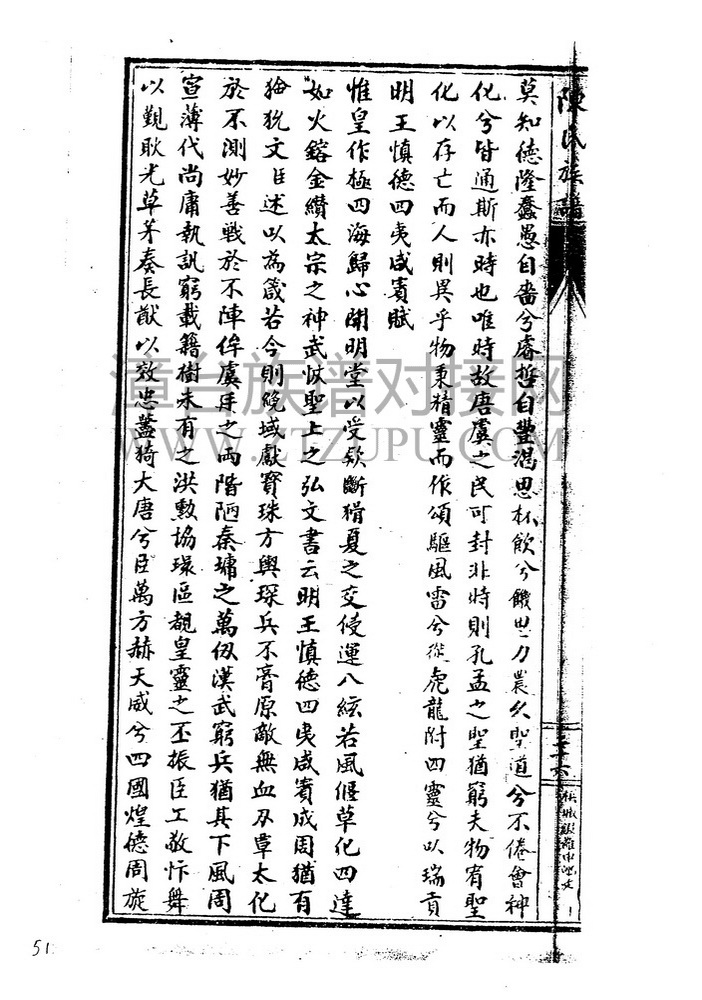 陳氏族譜
莫知德隆蠢愚自嗇兮睿哲自豐渴思杯飲兮饑思力農久聖道兮不倦會神
化兮皆通斯亦時也唯時故唐虞之民可封非時則孔孟之聖猶窮夫物有聖
化以存亡而人則異乎物秉精靈而作頌驅風雷兮從虎龍附四靈兮以瑞貢
明王慎德四夷咸賓賦
惟皇作極四海歸心開明堂以受欵斷猾夏之交侵運八紘若風偃草化四達
如火鎔金纘太宗之神武恢聖上之弘文書云明王慎德四夷咸賓成周猶有
獫狁文臣述以為箴若今則絶域獻寶珠方輿琛兵不膏原敵無血刃覃太化
於不測妙善戰於不陣侔虞廷之兩階陋秦墉之萬仭漢武窮兵猶其下風周
宣薄代尚庸執訊窮載籍樹未有之洪勲協環區覩皇靈之丕振臣工敬忭舞
以覲耿光草茅奏長猷以效忠藎猗大唐兮臣萬方赫天威兮四國煌德周旋
漳台族谱对接网
WWW.ZTZUPU.COM
51